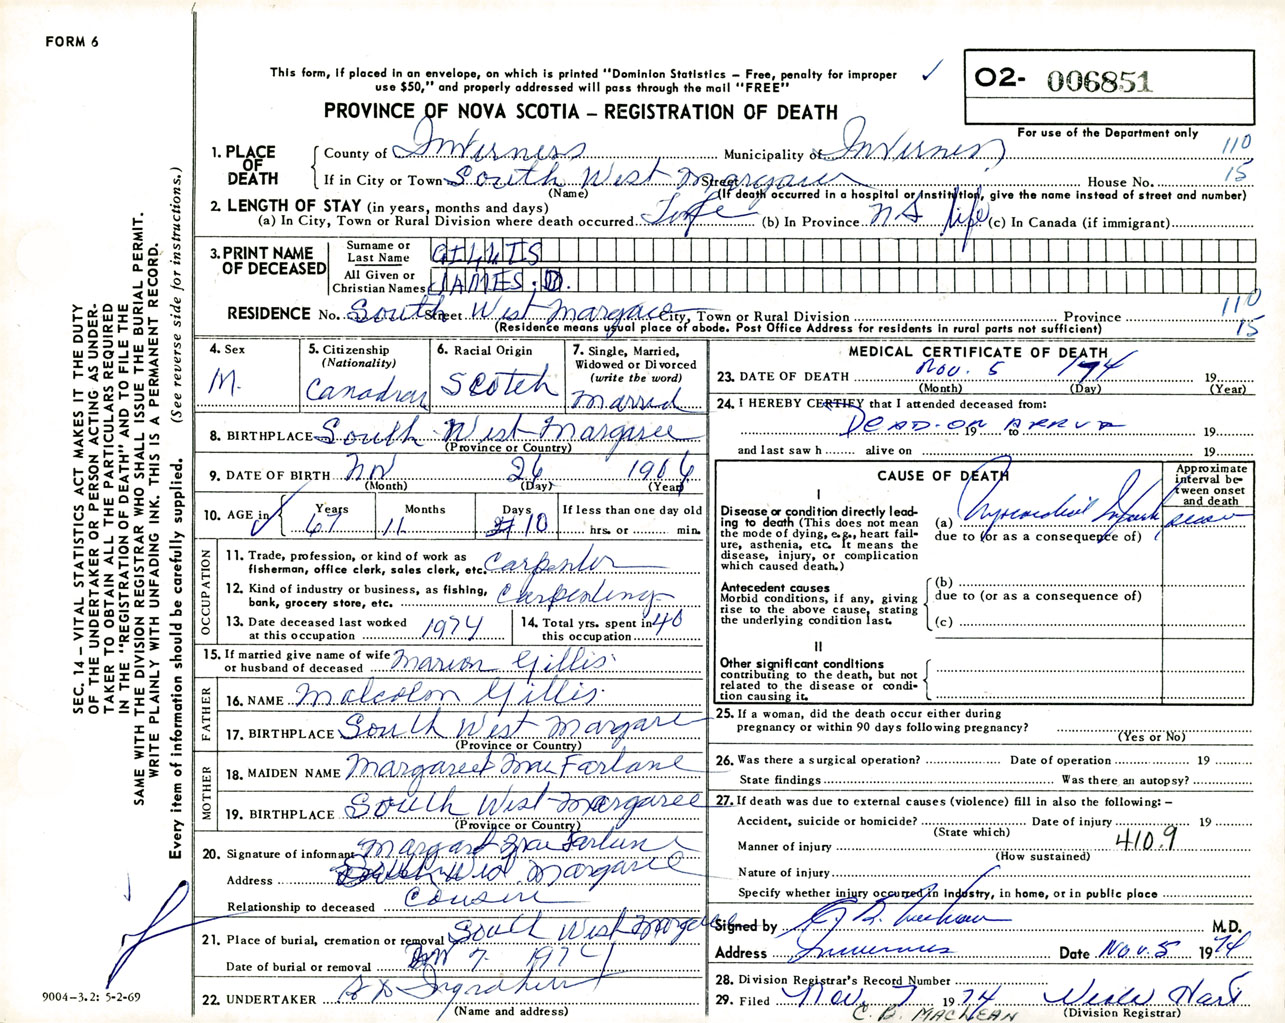 FORM 6
This form, if placed in an envelope, on which is printed "Dominion Statistics – Free, penalty for improper
use $50," and properly addressed will pass through the mail "FREE"
O2- 006851
PROVINCE OF NOVA SCOTIA – REGISTRATION OF DEATH
For use of the Department only
1. PLACE OF DEATH
County of Inverness Municipality of Inverness 110
If in City or Town South West Margaree Street House No. 15
(Name) (If death occurred in a hospital or Institution, give the name instead of street and number)
2. LENGTH OF STAY (in years, months and days)
(a) In City, Town or Rural Division where death occurred Life (b) In Province N S life (c) In Canada (if immigrant)
3. PRINT NAME OF DECEASED
Surname or Last Name GILLIS
All Given or Christian Names JAMES. D.
RESIDENCE No. South Street West Margaree City, Town or Rural Division Province 110
(Residence means usual place of abode. Post Office Address for residents in rural parts not sufficient) 15
4. Sex M.
5. Citizenship (Nationality) Canadian
6. Racial Origin Scotch
7. Single, Married, Widowed or Divorced (write the word) Married
8. BIRTHPLACE South West Margaree
(Province or Country)
9. DATE OF BIRTH Nov 26 1906
(Month) (Day) (Year)
10. AGE in Years 67 Months 11 Days 10 If less than one day old
hrs. or min.
OCCUPATION
11. Trade, profession, or kind of work as
fisherman, office clerk, sales clerk, etc. Carpenter
12. Kind of industry or business, as fishing,
bank, grocery store, etc. Carpentering
13. Date deceased last worked
at this occupation 1974
14. Total yrs. spent in
this occupation 40
15. If married give name of wife
or husband of deceased Marion Gillis
FATHER
16. NAME Malcolm Gillis
17. BIRTHPLACE South West Margaree
(Province or Country)
MOTHER
18. MAIDEN NAME Margaret MacFarlane
19. BIRTHPLACE South West Margaree
(Province or Country)
20. Signature of informant Margaret MacFarlane
Address South West Margaree
Relationship to deceased Cousin
21. Place of burial, cremation or removal South West Margaree
Date of burial or removal Nov 7 1974
22. UNDERTAKER
(Name and address)
MEDICAL CERTIFICATE OF DEATH
23. DATE OF DEATH Nov. 5 1974 19
(Month) (Day) (Year)
24. I HEREBY CERTIFY that I attended deceased from:
DEAD ON 19 to 19
and last saw h alive on 19
CAUSE OF DEATH
Approximate interval between onset and death
I
Disease or condition directly leading
to death (This does not mean
the mode of dying, e.g., heart failure,
asthenia, etc. It means the
disease, injury, or complication
which caused death.)
(a) Myocardial Infarct
due to (or as a consequence of)
Antecedent causes
Morbid conditions, if any, giving
rise to the above cause, stating
the underlying condition last.
(b)
due to (or as a consequence of)
(c)
II
Other significant conditions
contributing to the death, but not
related to the disease or condition
causing it.
25. If a woman, did the death occur either during
pregnancy or within 90 days following pregnancy?
(Yes or No)
26. Was there a surgical operation? Date of operation 19
State findings Was there an autopsy?
27. If death was due to external causes (violence) fill in also the following: –
Accident, suicide or homicide? Date of injury 19
(State which)
Manner of injury 410.9
(How sustained)
Nature of injury
Specify whether injury occurred in Industry, in home, or in public place
Signed by M.D.
Address Inverness Date Nov. 5 1974
28. Division Registrar's Record Number
29. Filed Nov. 7 1974 Hart
C. B. MACLEAN (Division Registrar)
SEC. 14 – VITAL STATISTICS ACT MAKES IT THE DUTY
OF THE UNDERTAKER OR PERSON ACTING AS UNDER-
TAKER TO OBTAIN ALL THE PARTICULARS REQUIRED
IN THE "REGISTRATION OF DEATH" AND TO FILE THE
SAME WITH THE DIVISION REGISTRAR WHO SHALL ISSUE THE BURIAL PERMIT.
WRITE PLAINLY WITH UNFADING INK. THIS IS A PERMANENT RECORD.
Every item of information should be carefully supplied. (See reverse side for instructions.)
9004-3.2: 5-2-69